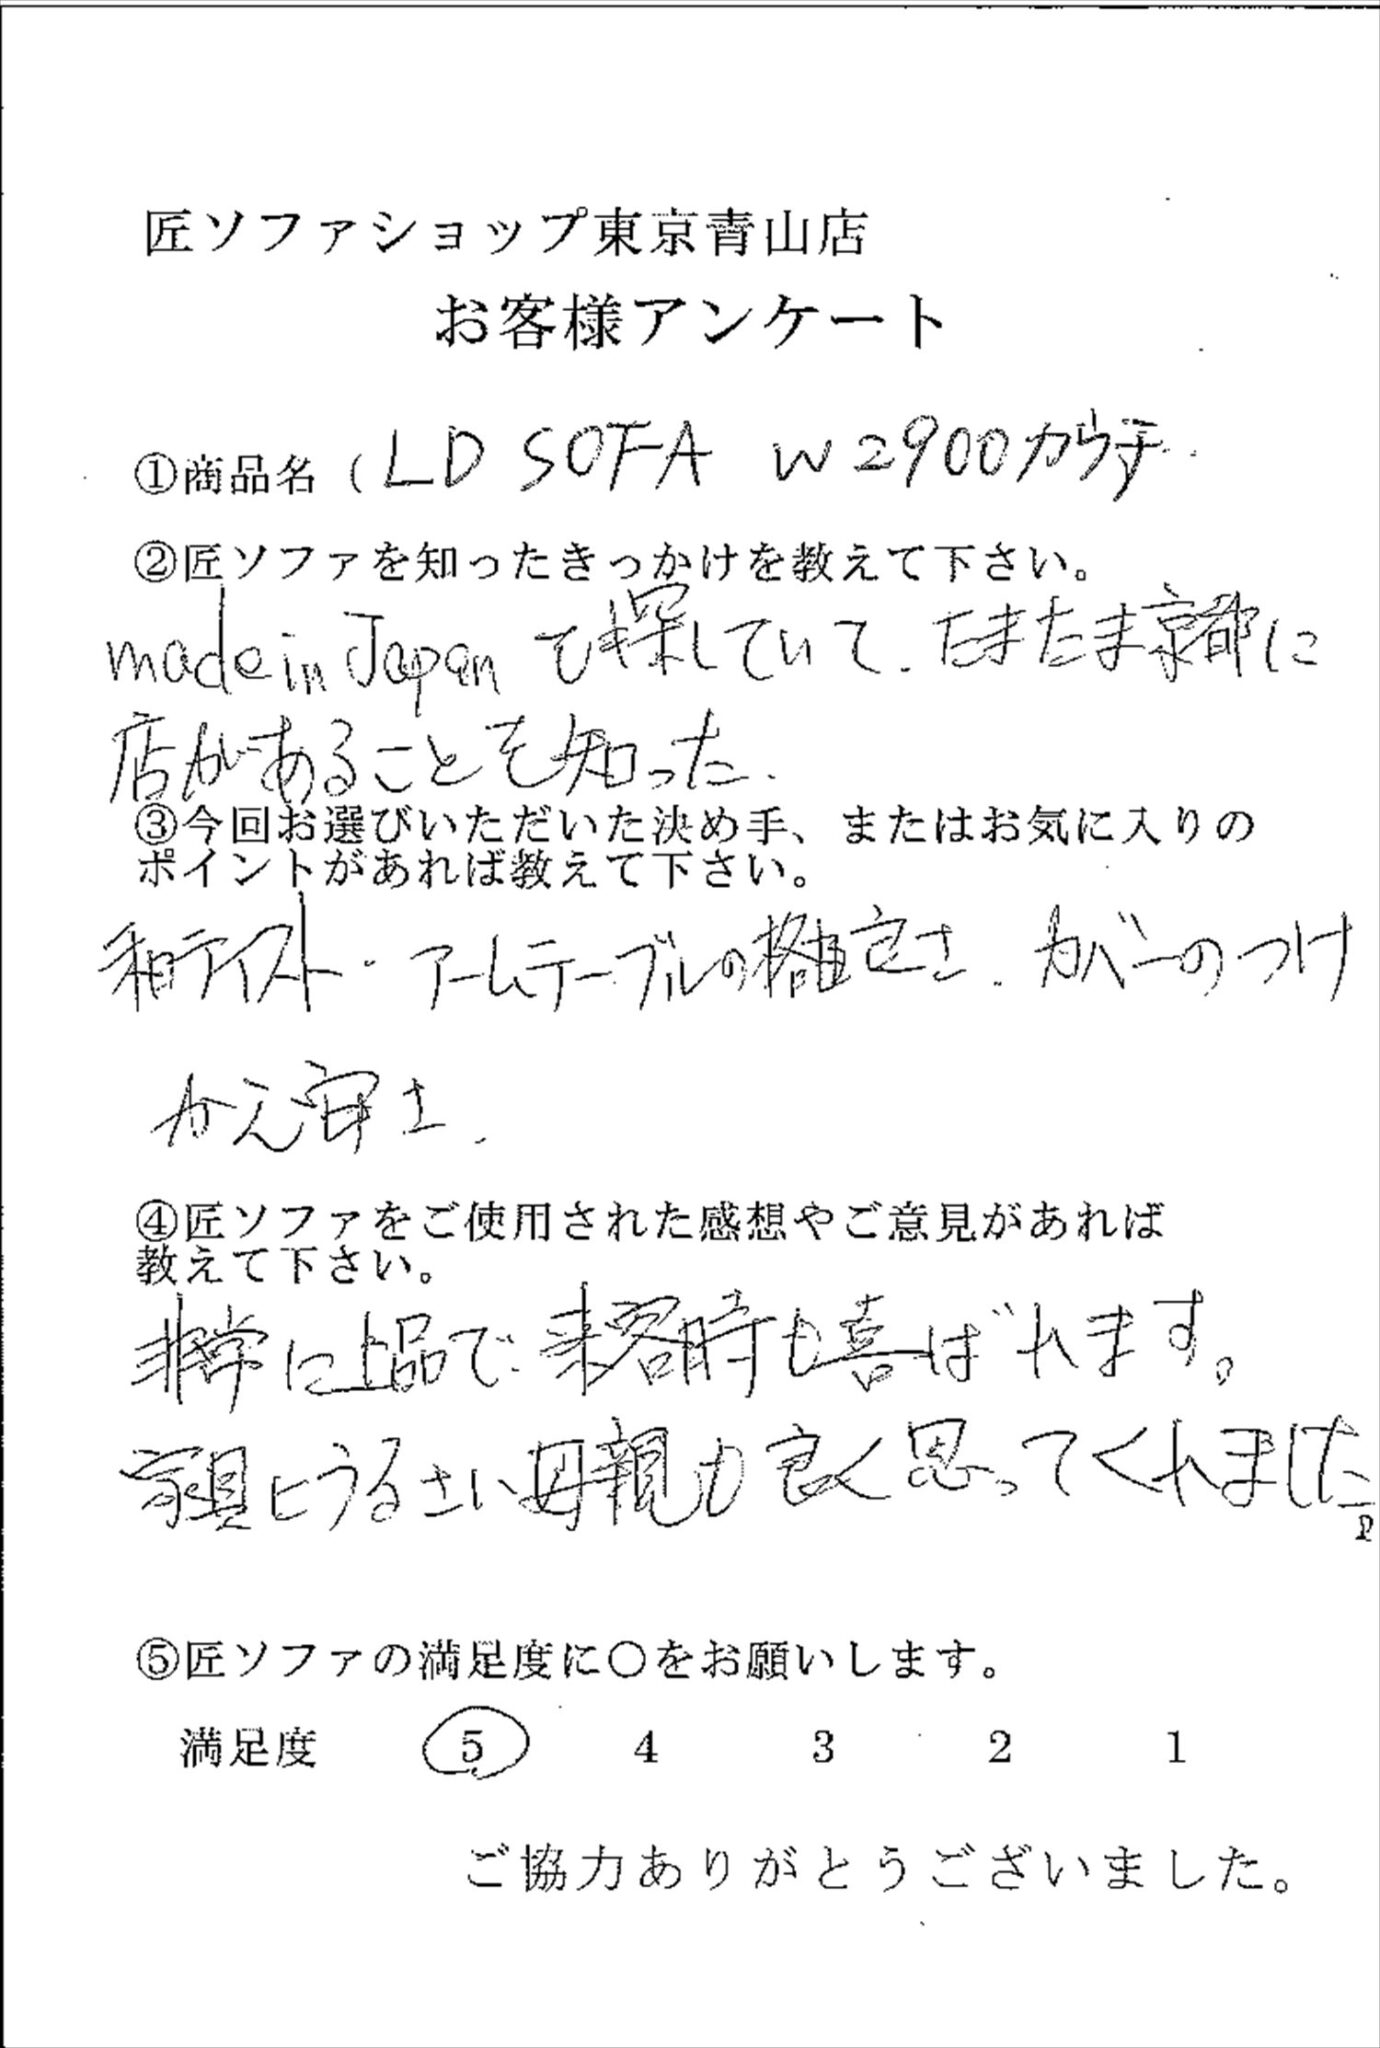 匠ソファショップ東京青山店
お客様アンケート
①商品名（LD SOFA W2900カウチ
②匠ソファを知ったきっかけを教えて下さい。
made in Japan で探していて、たまたま京都に
店があることを知った.
③今回お選びいただいた決め手、またはお気に入りの
ポイントがあれば教えて下さい。
和テイスト・アームテーブルの さ. カバーのつけ
かえ さ.
④匠ソファをご使用された感想やご意見があれば
教えて下さい。
非常に上品で来客時も喜ばれます。
家具にうるさい母親も良く思ってくれました。
⑤匠ソファの満足度に〇をお願いします。
満足度 5 4 3 2 1
ご協力ありがとうございました。